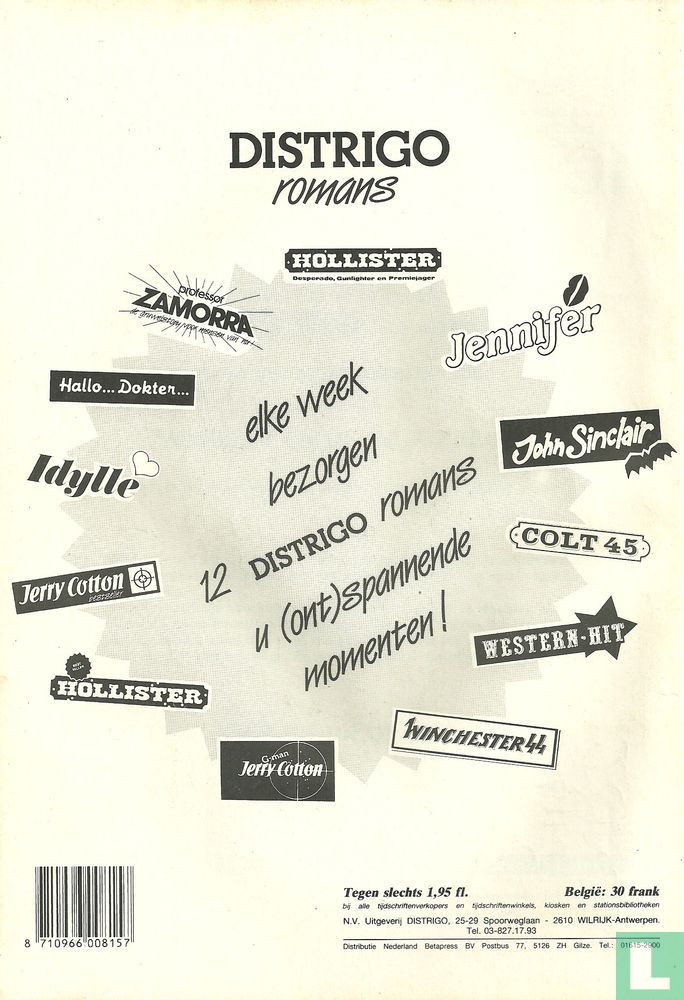 DISTRIGO
romans
HOLLISTER
Desperado, Gunfighter en Premiejager
professor
ZAMORRA
de griezelstory voor mensen van nu!
Jennifer
Hallo... Dokter...
John Sinclair
Idylle
COLT 45
Jerry Cotton
bestseller
WESTERN-HIT
BEST SELLER
HOLLISTER
WINCHESTER 44
G-man
Jerry Cotton
elke week
bezorgen
12 DISTRIGO romans
u (ont)spannende
momenten!
8 710966 008157
Tegen slechts 1,95 fl. België: 30 frank
bij alle tijdschriftenverkopers en tijdschriftenwinkels, kiosken en stationsbibliotheken
N.V. Uitgeverij DISTRIGO, 25-29 Spoorweglaan - 2610 WILRIJK-Antwerpen.
Tel. 03-827.17.93
Distributie Nederland Betapress BV Postbus 77, 5126 ZH Gilze. Tel.: 01615-2900
L